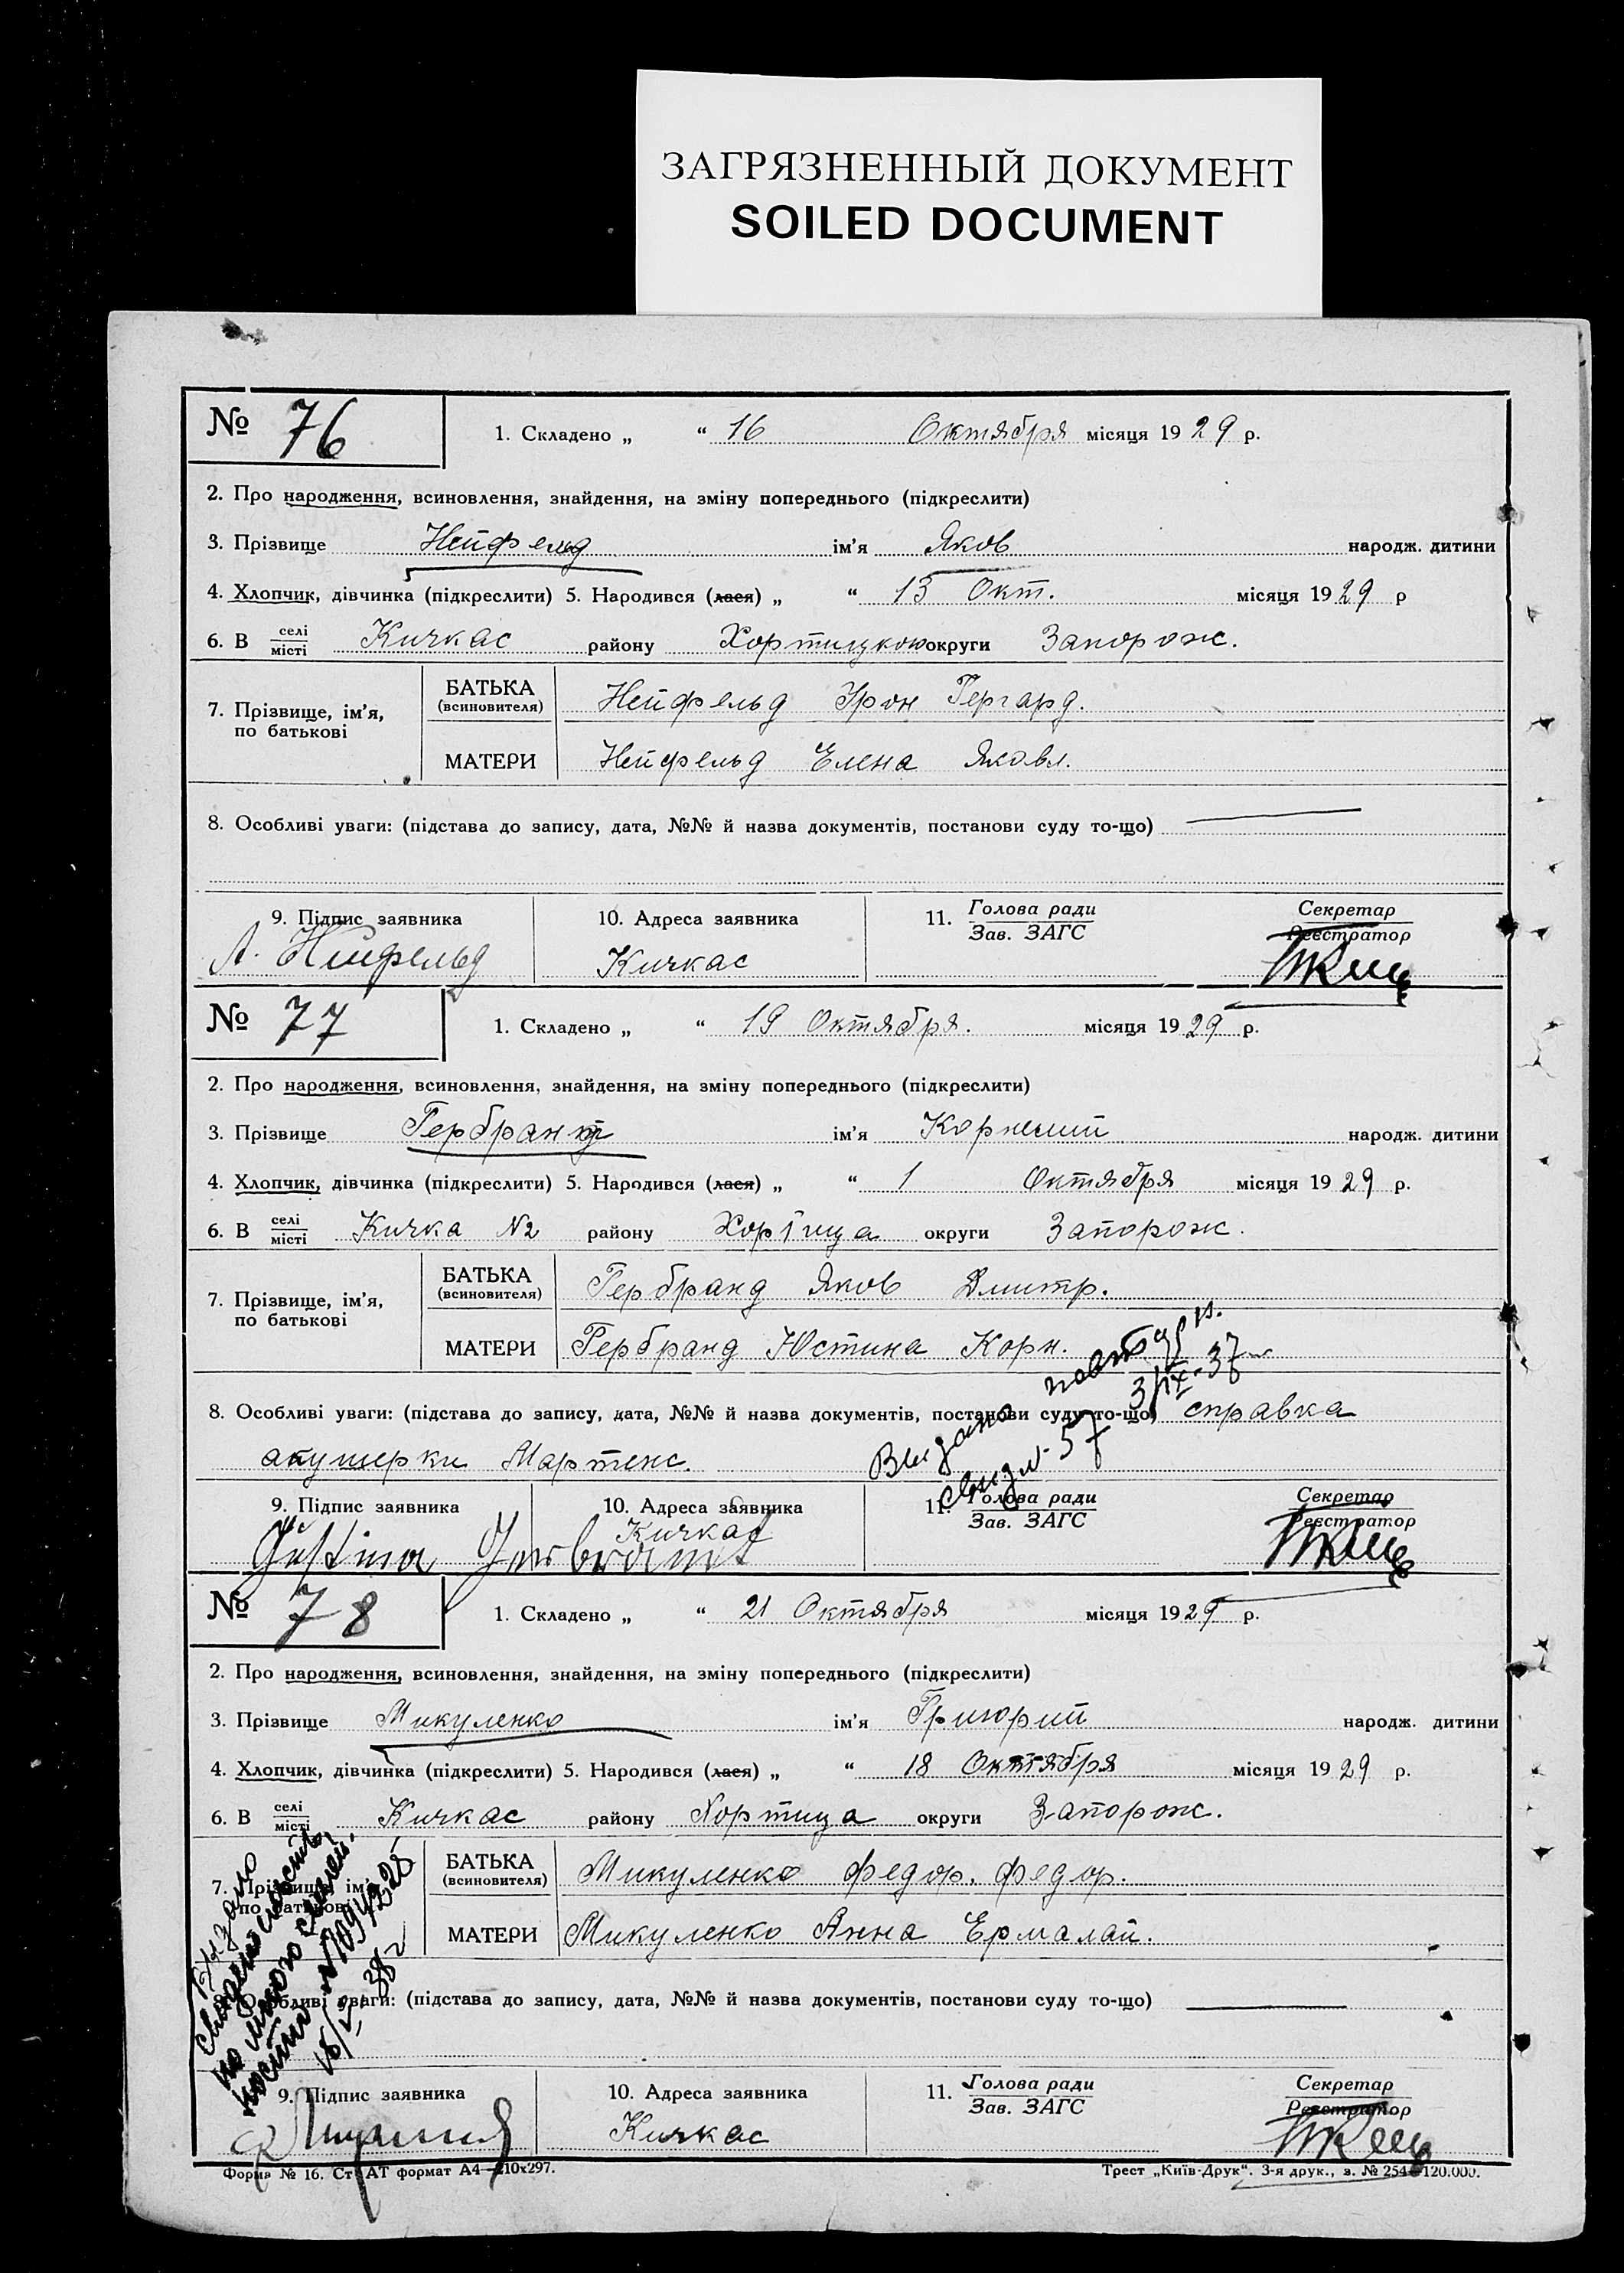 ЗАГРЯЗНЕННЫЙ ДОКУМЕНТ
SOILED DOCUMENT
№ 76
1. Складено „ “ 16 Октября місяця 1929 р.
2. Про народження, всиновлення, знайдення, на зміну попереднього (підкреслити)
3. Прізвище Нейфельд ім'я Яков народж. дитини
4. Хлопчик, дівчинка (підкреслити) 5. Народився (лася) „ “ 13 Окт. місяця 1929 р
6. В селі місті Кичкас району Хортицкою округи Запорож.
7. Прізвище, ім'я, по батькові
БАТЬКА (всиновителя) Нейфельд Гергард.
МАТЕРИ Нейфельд Елена Яковл.
8. Особливі уваги: (підстава до запису, дата, №№ й назва документів, постанови суду то-що)
9. Підпис заявника 10. Адреса заявника 11. Голова ради Секретар
Зав. ЗАГС Реєстратор
Нейфельд Кичкас
№ 77
1. Складено „ “ 19 Октября. місяця 1929 р.
2. Про народження, всиновлення, знайдення, на зміну попереднього (підкреслити)
3. Прізвище Гербранд ім'я Корнелий народж. дитини
4. Хлопчик, дівчинка (підкреслити) 5. Народився (лася) „ “ 1 Октября місяця 1929 р.
6. В селі місті Кичка №2 району Хортица округи Запорож.
7. Прізвище, ім'я, по батькові
БАТЬКА (всиновителя) Гербранд Яков Дмитр.
МАТЕРИ Гербранд Юстина Корн.
Выдано
3/IX-37
8. Особливі уваги: (підстава до запису, дата, №№ й назва документів, постанови суду то-що) справка
акушерки Мартенс.
9. Підпис заявника 10. Адреса заявника 11. Голова ради Секретар
Зав. ЗАГС Реєстратор
Кичкас
Justina Gerbrandt
№ 78
1. Складено „ “ 21 Октября місяця 1929 р.
2. Про народження, всиновлення, знайдення, на зміну попереднього (підкреслити)
3. Прізвище Микуленко ім'я Григорий народж. дитини
4. Хлопчик, дівчинка (підкреслити) 5. Народився (лася) „ “ 18 Октября місяця 1929 р.
6. В селі місті Кичкас району Хортица округи Запорож.
7. Прізвище, ім'я, по батькові
БАТЬКА (всиновителя) Микуленко Федор. Федор.
МАТЕРИ Микуленко Анна Ермалай.
Выдано
8. Особливі уваги: (підстава до запису, дата, №№ й назва документів, постанови суду то-що)
9. Підпис заявника 10. Адреса заявника 11. Голова ради Секретар
Зав. ЗАГС Реєстратор
Кичкас
Форма № 16. СтАТ формат А4—210x297.
Трест „Київ-Друк“. 3-я друк., з. № 254—120.000.